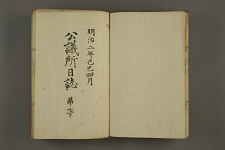 明治二年己巳四月
公議所日誌 第十